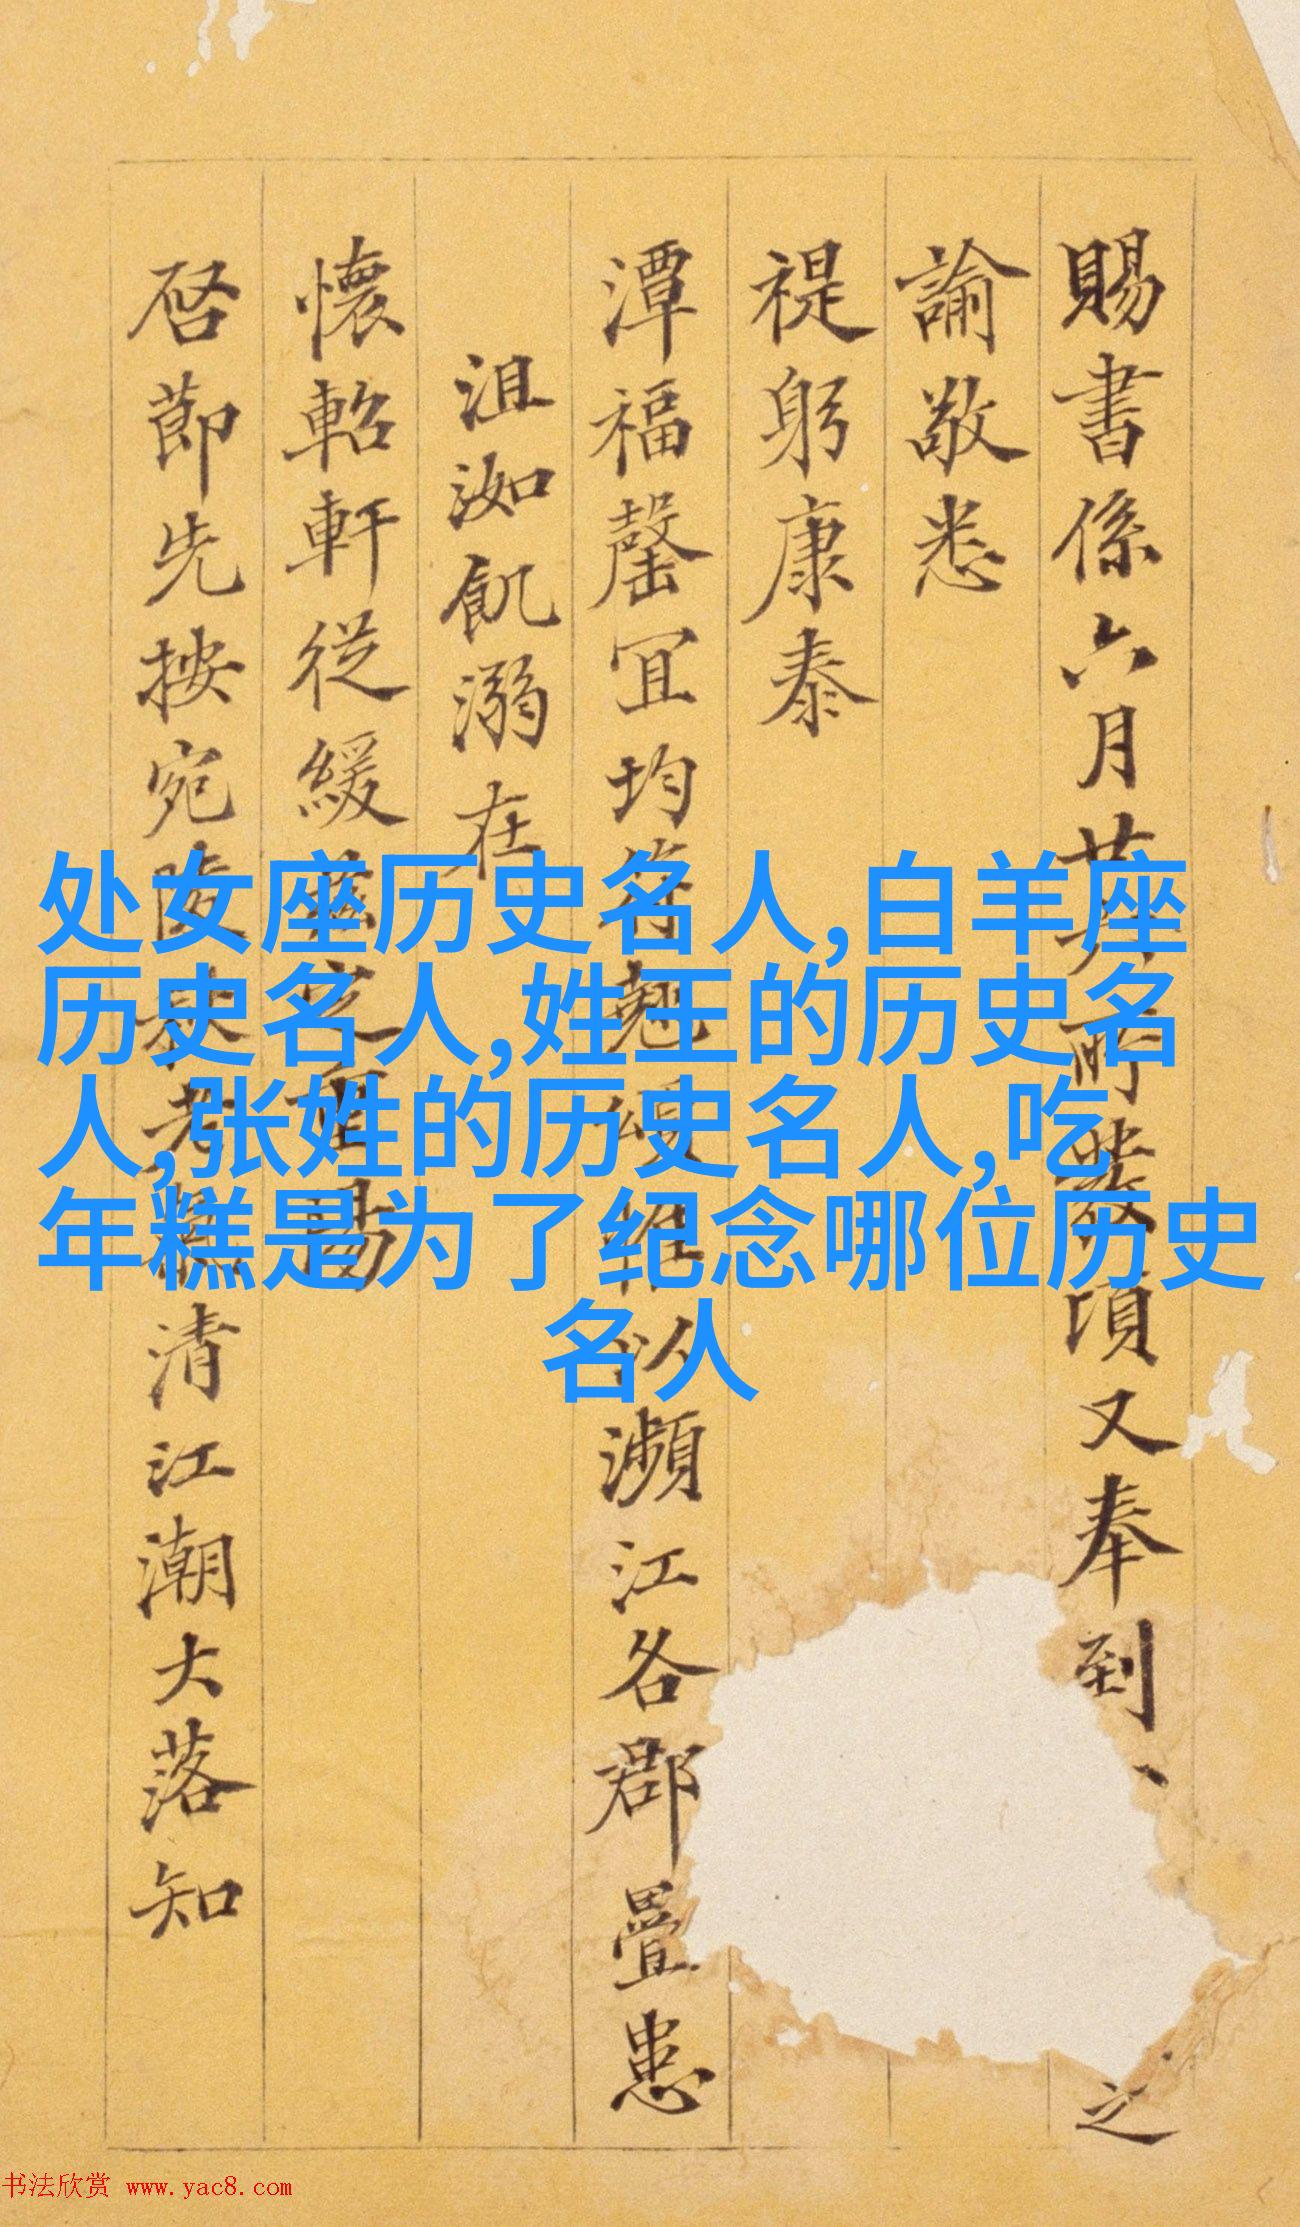 賜書係六月廿所發頃又奉到
之
諭敬悉
禔躬康泰
潭福罄宜均符以瀕江各郡疊患
沮洳飢溺在
懷軺軒從緩
啓節先按宛陵清江潮大落知
处女座历史名人,白羊座
历史名人,姓王的历史名
人,张姓的历史名人,吃
年糕是为了纪念哪位历史
名人
书法欣赏 www.yac8.com